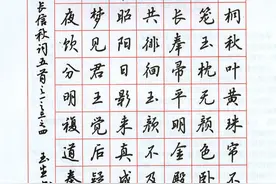 桐秋叶黄珠帘不
笼玉枕无颜色卧
长奉帚平明金殿
共徘徊玉颜不及
昭阳日影来真成
梦见君王觉后疑
夜饮分明複道奏
长信秋词五首之一之三之四